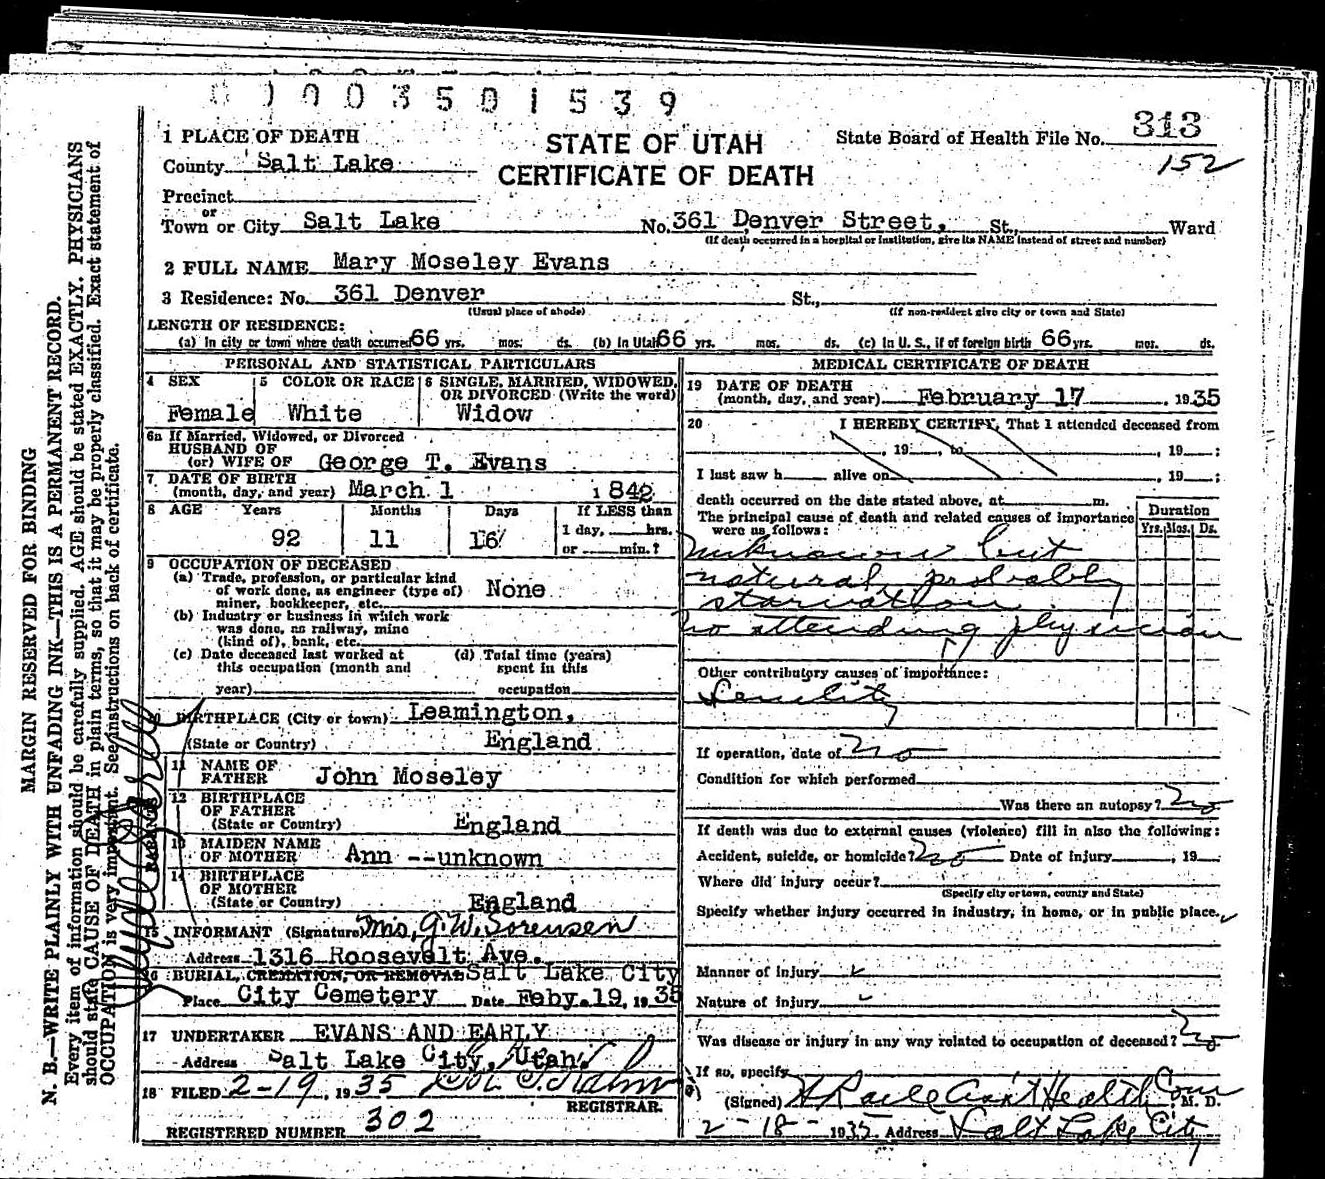 0 1 0 0 3 5 0 1 5 3 9
1 PLACE OF DEATH
STATE OF UTAH
CERTIFICATE OF DEATH
State Board of Health File No. 313
152
County Salt Lake
Precinct
or
Town or City Salt Lake No. 361 Denver Street, St., Ward
(If death occurred in a hospital or institution, give its NAME instead of street and number)
2 FULL NAME Mary Moseley Evans
3 Residence: No. 361 Denver St.,
(Usual place of abode) (If non-resident give city or town and State)
LENGTH OF RESIDENCE:
(a) In city or town where death occurred 66 yrs. mos. ds. (b) In Utah 66 yrs. mos. ds. (c) In U. S., if of foreign birth 66 yrs. mos. ds.
PERSONAL AND STATISTICAL PARTICULARS
4 SEX Female
5 COLOR OR RACE White
6 SINGLE, MARRIED, WIDOWED, OR DIVORCED (Write the word) Widow
6a If Married, Widowed, or Divorced
HUSBAND OF
(or) WIFE OF George T. Evans
7 DATE OF BIRTH
(month, day, and year) March 1 1842
8 AGE Years Months Days If LESS than
92 11 16 1 day, hrs.
or min.?
9 OCCUPATION OF DECEASED
(a) Trade, profession, or particular kind
of work done, as engineer (type of) None
miner, bookkeeper, etc.
(b) Industry or business in which work
was done, as railway, mine
(kind of), bank, etc.
(c) Date deceased last worked at (d) Total time (years)
this occupation (month and spent in this
year) occupation
10 BIRTHPLACE (City or town) Leamington,
(State or Country) England
PARENTS
11 NAME OF
FATHER John Moseley
12 BIRTHPLACE
OF FATHER
(State or Country) England
13 MAIDEN NAME
OF MOTHER Ann --unknown
14 BIRTHPLACE
OF MOTHER
(State or Country) England
15 INFORMANT (Signature) Mrs, G. W. Sorensen
Address 1316 Roosevelt Ave.
16 BURIAL, CREMATION, OR REMOVAL Salt Lake City
Place City Cemetery Date Feby. 19, 1935
17 UNDERTAKER EVANS AND EARLY
Address Salt Lake City, Utah.
18 FILED 2-19, 1935
REGISTRAR.
REGISTERED NUMBER 302
MEDICAL CERTIFICATE OF DEATH
19 DATE OF DEATH
(month, day, and year) February 17, 1935
20 I HEREBY CERTIFY, That I attended deceased from
, 19 , to , 19 ;
I last saw h alive on , 19 ;
death occurred on the date stated above, at m.
The principal cause of death and related causes of importance
were as follows:
Duration
Yrs. Mos. Ds.
unknown but
natural, probably
starvation.
no attending physician
Other contributory causes of importance:
Senility
If operation, date of no
Condition for which performed
Was there an autopsy? no
If death was due to external causes (violence) fill in also the following:
Accident, suicide, or homicide? no Date of injury , 19
Where did injury occur?
(Specify city or town, county and State)
Specify whether injury occurred in industry, in home, or in public place.
Manner of injury
Nature of injury
Was disease or injury in any way related to occupation of deceased? no
If so, specify
(Signed) Health Com M. D.
2-18-1935 Address Salt Lake City
MARGIN RESERVED FOR BINDING
N. B.—WRITE PLAINLY WITH UNFADING INK—THIS IS A PERMANENT RECORD.
Every item of information should be carefully supplied. AGE should be stated EXACTLY. PHYSICIANS
should state CAUSE OF DEATH in plain terms, so that it may be properly classified. Exact statement of
OCCUPATION is very important. See instructions on back of certificate.